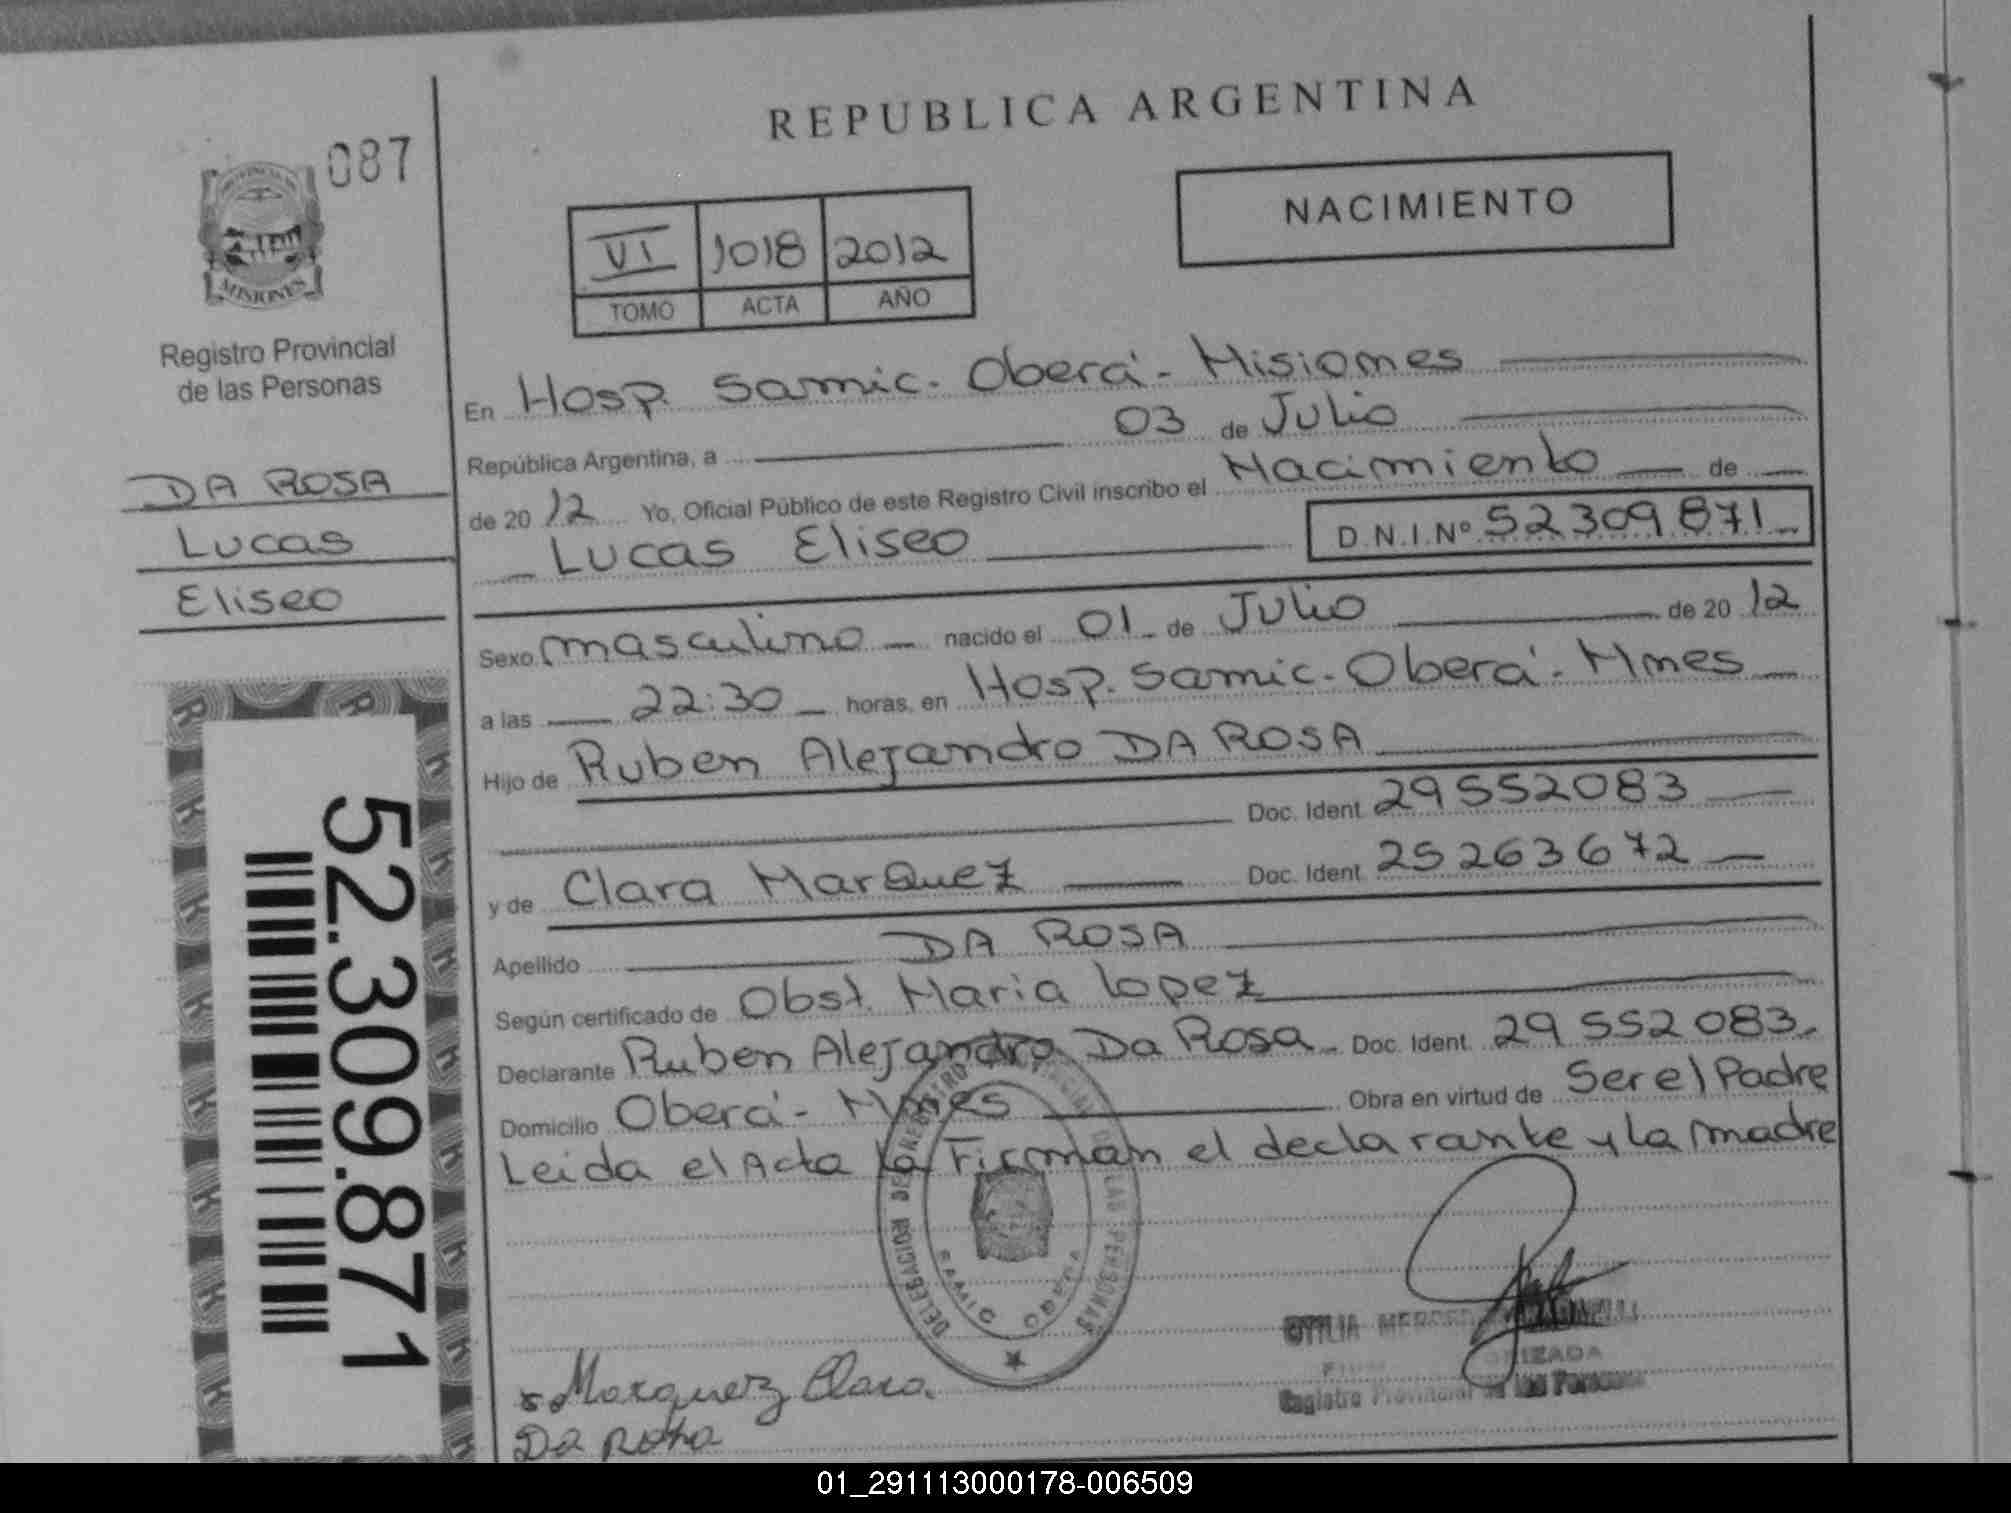 REPUBLICA ARGENTINA
087
NACIMIENTO
VI 1018 2012
TOMO ACTA AÑO
MISIONES
Registro Provincial
de las Personas
DA ROSA
Lucas
Eliseo
52.309.871
En Hosp. Samic. Oberá - Misiones
República Argentina, a 03 de Julio
de 20 12 Yo, Oficial Público de este Registro Civil inscribo el Nacimiento de
Lucas Eliseo D.N.I.Nº 52309871
Sexo masculino nacido el 01 de Julio de 20 12
a las 22:30 horas, en Hosp. Samic. Oberá - Mnes
Hijo de Ruben Alejandro DA ROSA
Doc. Ident. 29552083
y de Clara Marquez Doc. Ident. 25263672
Apellido DA ROSA
Según certificado de Obst. Maria Lopez
Declarante Ruben Alejandro Da Rosa Doc. Ident. 29552083
Domicilio Oberá - Mnes Obra en virtud de Ser el Padre
Leida el Acta la Firman el declarante y la madre
DELEGACION DE REGISTRO PROVINCIAL DE LAS PERSONAS
SAMIC OBERA
OTILIA
Registro Provincial de las Personas
Marquez Clara
Da Rosa
01_291113000178-006509